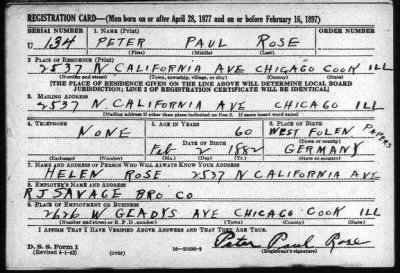 REGISTRATION CARD—(Men born on or after April 28, 1877 and on or before February 16, 1897)
SERIAL NUMBER 1. NAME (Print) ORDER NUMBER
U 134 PETER PAUL ROSE
(First) (Middle) (Last)
2. PLACE OF RESIDENCE (Print)
2537 N CALIFORNIA AVE CHICAGO COOK ILL
(Number and street) (Town, township, village, or city) (County) (State)
[THE PLACE OF RESIDENCE GIVEN ON THE LINE ABOVE WILL DETERMINE LOCAL BOARD
JURISDICTION; LINE 2 OF REGISTRATION CERTIFICATE WILL BE IDENTICAL]
3. MAILING ADDRESS
2537 N CALIFORNIA AVE CHICAGO ILL
[Mailing address if other than place indicated on line 2. If same insert word same]
4. TELEPHONE 5. AGE IN YEARS 6. PLACE OF BIRTH
NONE 60 WEST FOLEN
DATE OF BIRTH (Town or county)
FEB 2 1882 GERMANY
(Exchange) (Number) (Mo.) (Day) (Yr.) (State or country)
7. NAME AND ADDRESS OF PERSON WHO WILL ALWAYS KNOW YOUR ADDRESS
HELEN ROSE 2537 N CALIFORNIA AVE
8. EMPLOYER'S NAME AND ADDRESS
R J SAVAGE BRO CO
9. PLACE OF EMPLOYMENT OR BUSINESS
2626 W GLADYS AVE CHICAGO COOK ILL
(Number and street or R. F. D. number) (Town) (County) (State)
I AFFIRM THAT I HAVE VERIFIED ABOVE ANSWERS AND THAT THEY ARE TRUE.
D. S. S. Form 1 Peter Paul Rose
(Revised 4-1-42) (over) (Registrant's signature)